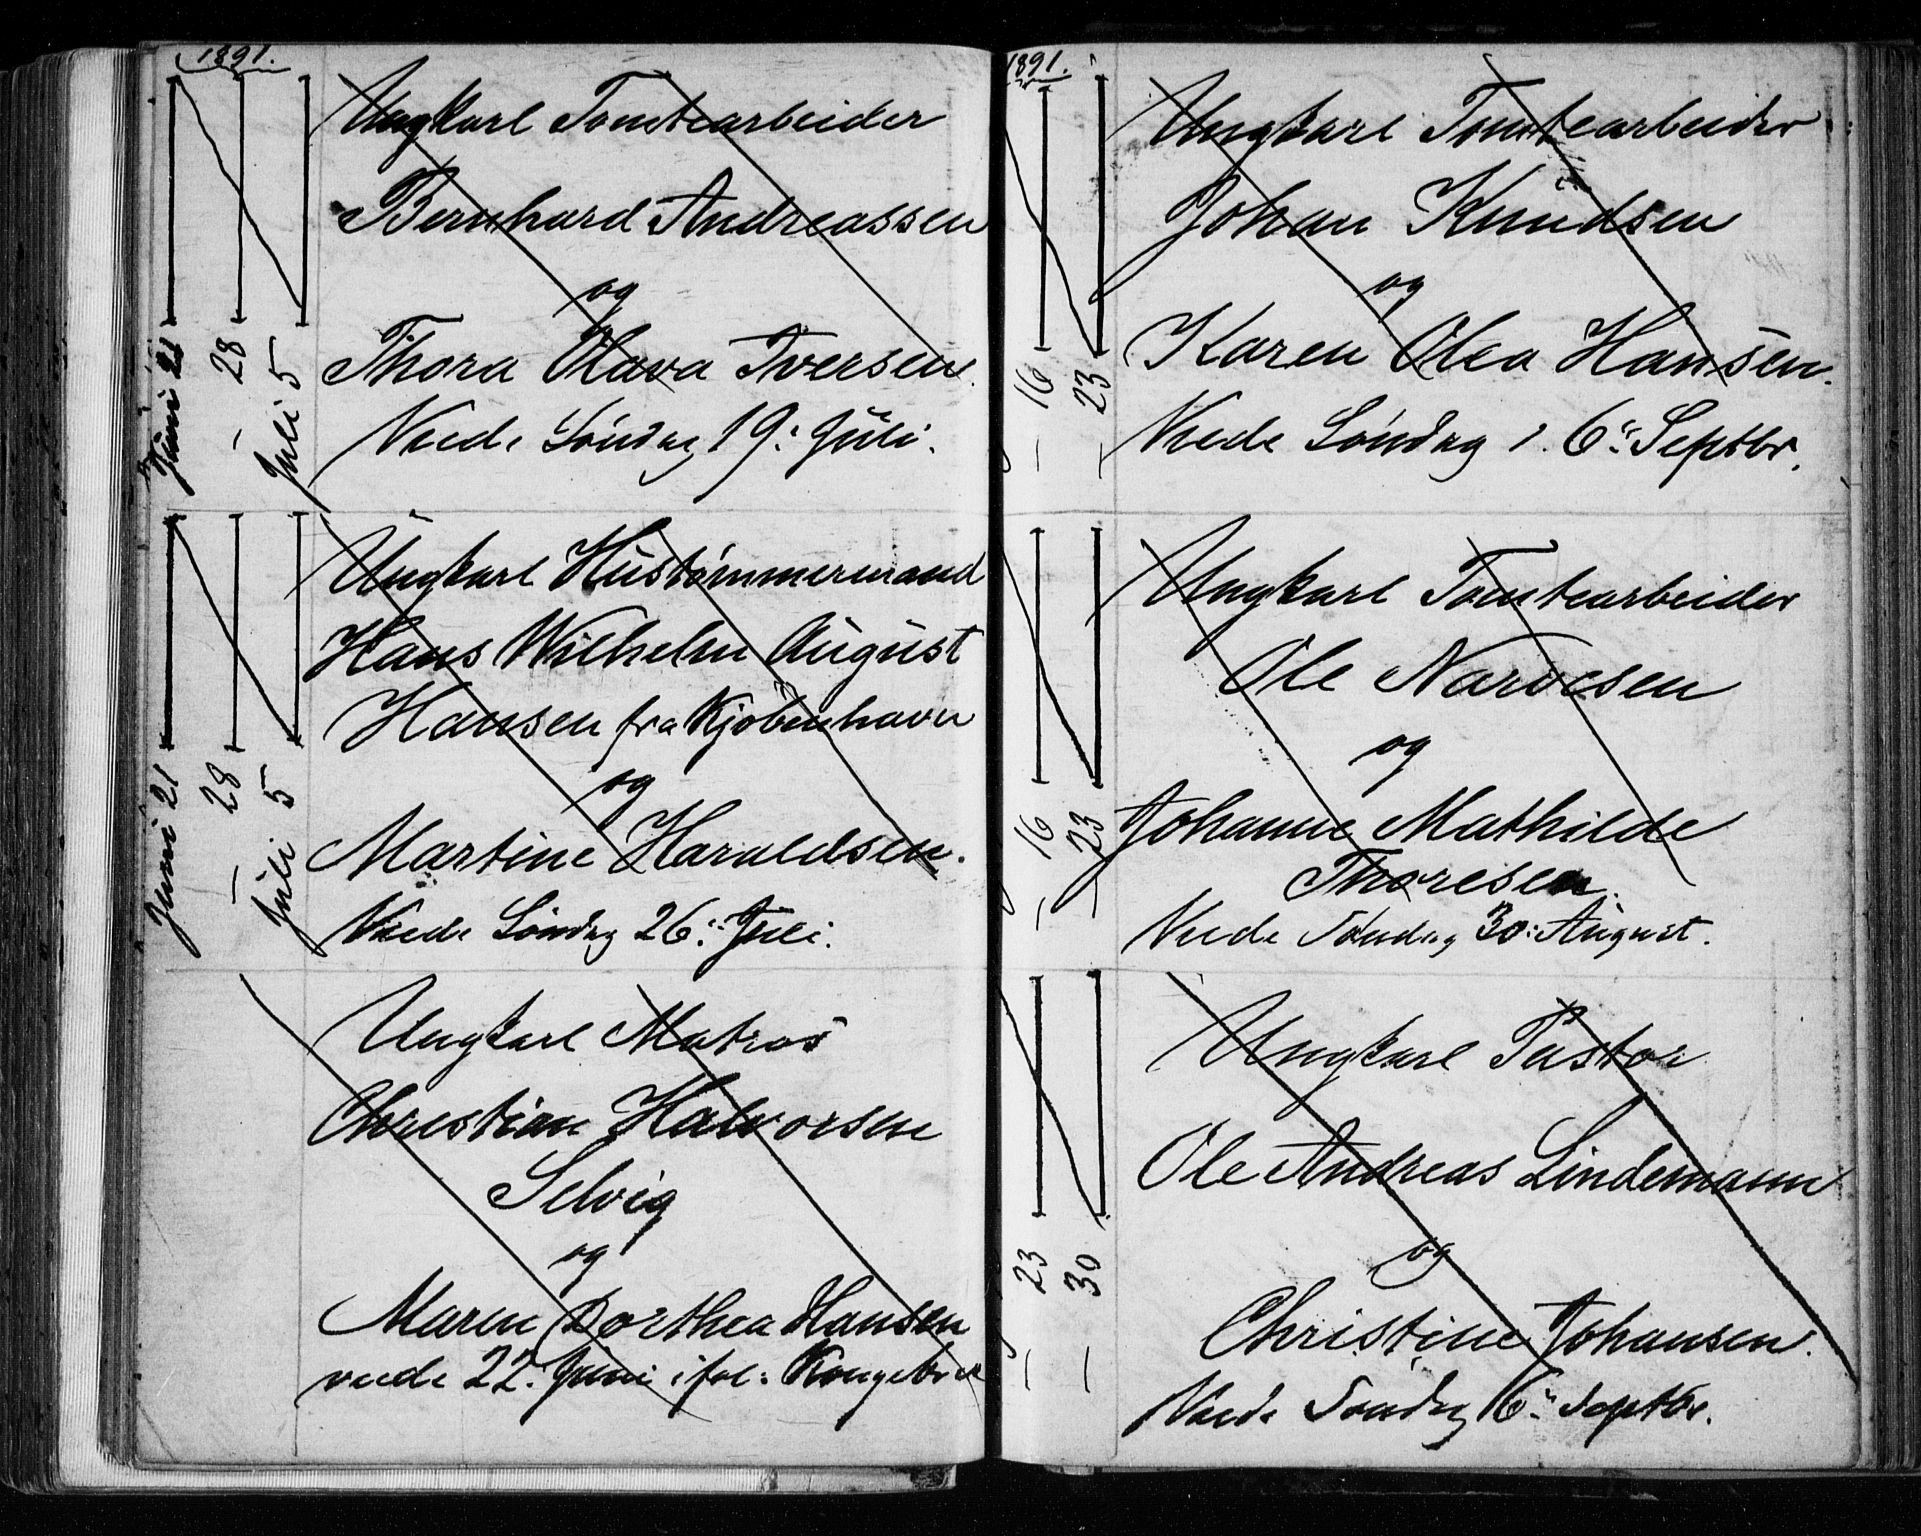 1891.
Ungkarl Tomtearbeider
Bernhard Andreassen
og
Thora Olava Iversen.
Viede Söndag 19: Juli.
Juni 21
— 28
Juli 5
Ungkarl Hustömmermand
Hans Wilhelm August
Hansen fra Kjöbenhavn
og
Martine Haraldsen.
Viede Söndag 26: Juli.
Juni 21
— 28
Juli 5
Ungkarl Matros
Christian Halvorsen
Selvig
og
Maren Dorthea Hansen
viede 22. Juni iføl: Kongebrev
1891.
Ungkarl Tomtearbeider
Johan Knudsen
og
Karen Olea Hansen.
Viede Söndag 6: Septbr.
— 16
— 23
Ungkarl Tomtearbeider
Ole Narvesen
og
Johanne Mathilde
Thoresen.
Viede Söndag 30: August.
— 16
— 23
Ungkarl Pastor
Ole Andreas Lindemann
og
Christine Johansen.
Viede Söndag 6: Septbr.
— 23
— 30